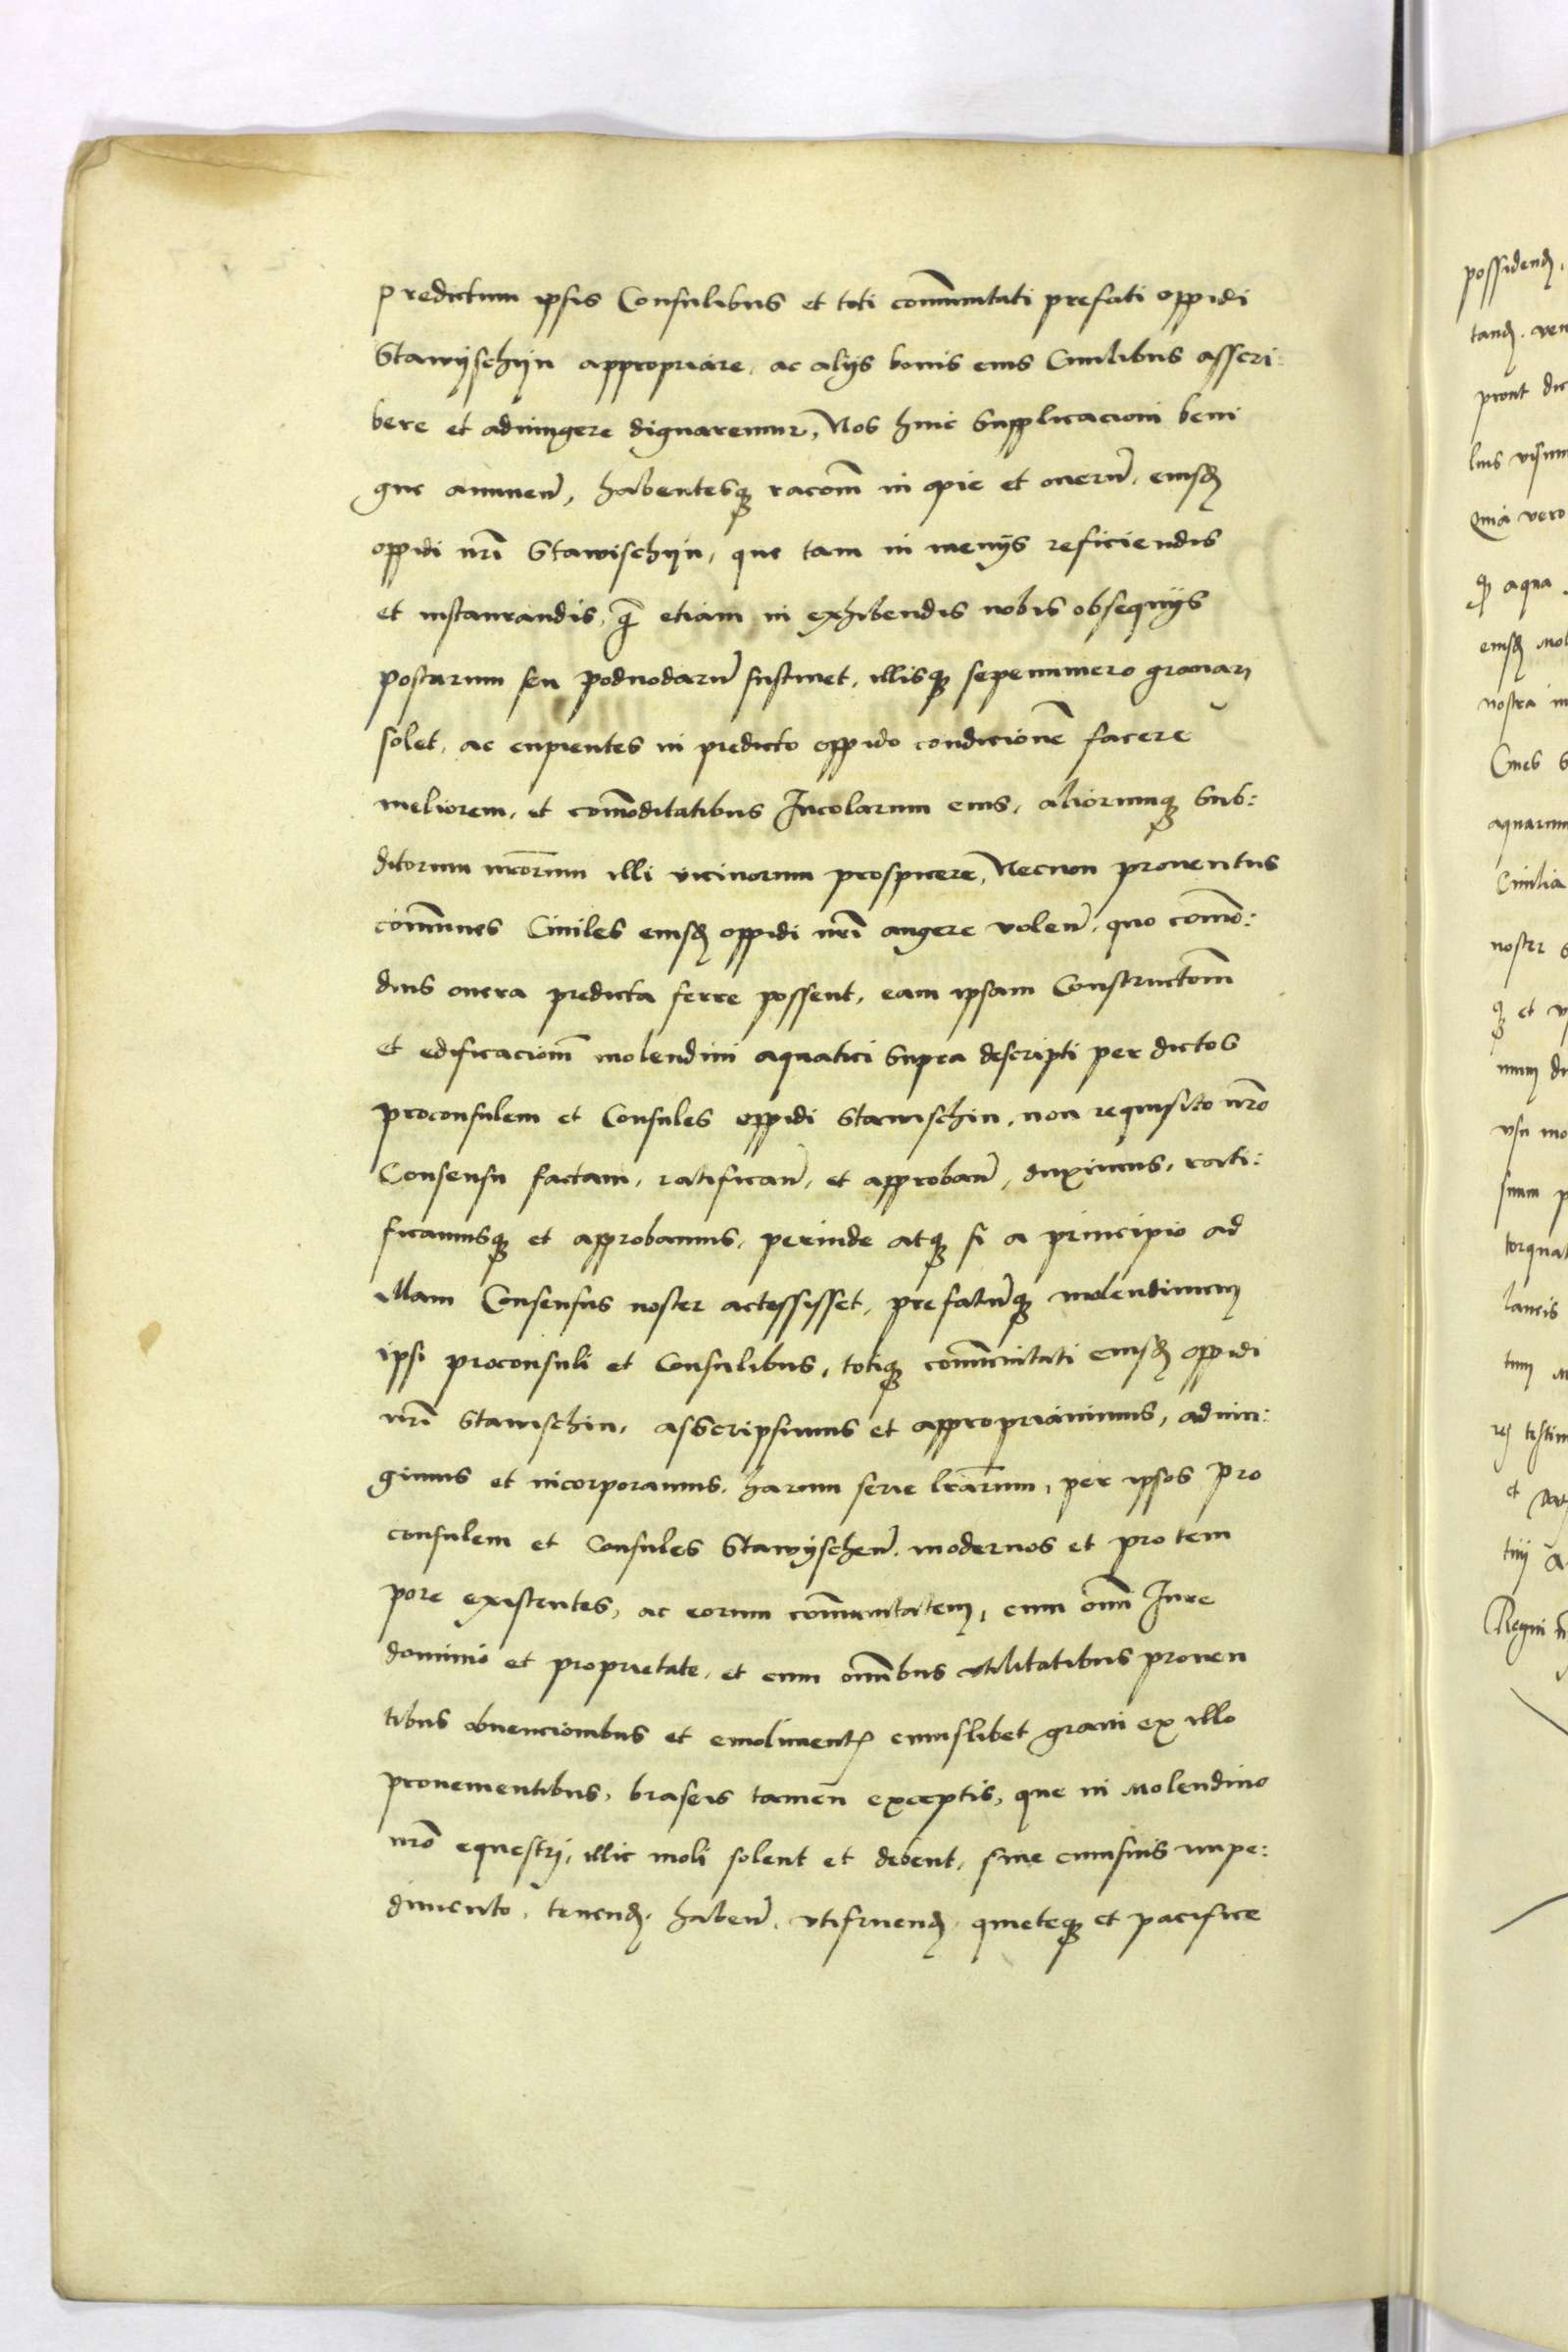 predictum ipsis Consulibus et toti com̄unitati prefati oppidi
Stawyschyn appropriare, ac alijs bonis eius Ciuilibus asscri:
bere et adiungere dignaremur, Nos huic Supplicacioni beni
gne annuen̄, habentesq racoēm inopie et onerū, eiusd
oppidi nr̄i Stawischyn, que tam in menijs reficiendis
et instaurandis, q̄ etiam in exhibendis nobis obsequijs
postarum seu podwodarū sustinet, illisq sepenumero grauari
solet, ac cupientes in predicto oppido condicionē facere
meliorem, et com̄oditatibus Incolarum eius, aliorumq Sub:
ditorum nr̄orum illi vicinorum prospicere, Necnon prouentus
com̄unes Ciuiles eiusd oppidi nr̄i augere volen̄, quo com̄o:
dius onera predicta ferre possent, eam ipsam Constructiōm
et edificaciom̄ molendini aquatici Supra descripti per dictos
proconsulem et Consules oppidi Stawischin, non requisito nr̄o
Consensu factam, ratifican̄, et approban̄, duximus, rati:
ficamusq et approbamus, perinde atq si a principio ad
illam Consensus noster accessisset, prefatūq molendinum
ipsi proconsuli et Consulibus, totiq com̄unitati eiusd oppidi
nr̄i Stawischin, asscripsimus et appropriauimus, adiun:
gimus et incorporamus, harum serie lr̄arum, per ipsos pro
consulem et Consules Stawyschen̄, modernos et pro tem
pore existentes, ac eorum com̄unitatem, cum om̄i Iure
dominio et proprietate, et cum om̄ibus vtilitatibus prouen
tibus obuencionibus et emolimentis cuiuslibet grani ex illo
prouenientibus, braseis tamen exceptis, que in Molendino
nr̄o equestrj, illic moli solent et debent, sine cuiusuis impe:
dimento, tenend, haben̄, vtifruend, quieteq et pacifice